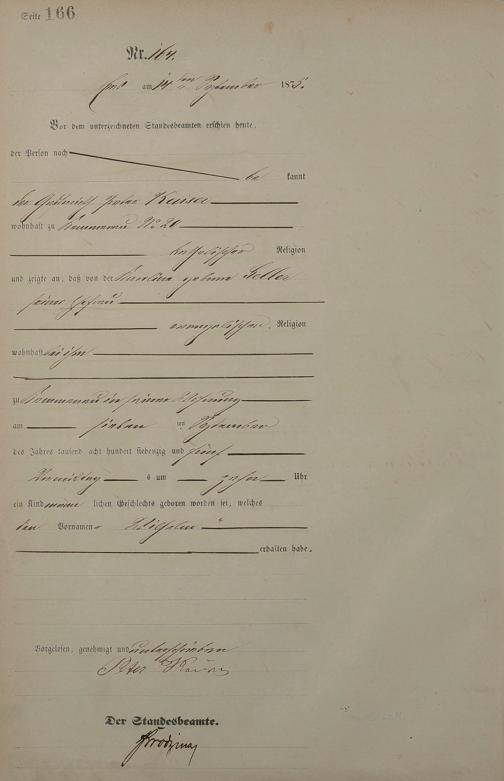 Seite 166
Nr. 164.
Ems am 14ten September 1875.
Vor dem unterzeichneten Standesbeamten erschien heute,
der Person nach
be kannt
der Peter Kaiser
wohnhaft zu Kemmenau No 20
katholischer Religion
und zeigte an, daß von der Karoline geborne Keller
seiner Ehefrau
evangelischer Religion
wohnhaft bei ihm
zu Kemmenau in seiner Wohnung
am sieben ten September
des Jahres tausend acht hundert siebenzig und fünf
Vormittag s um Uhr
ein Kind männ lichen Geschlechts geboren worden sei, welches
den Vornamen Wilhelm
erhalten habe.
Vorgelesen, genehmigt und unterschrieben
Peter Kaiser
Der Standesbeamte.